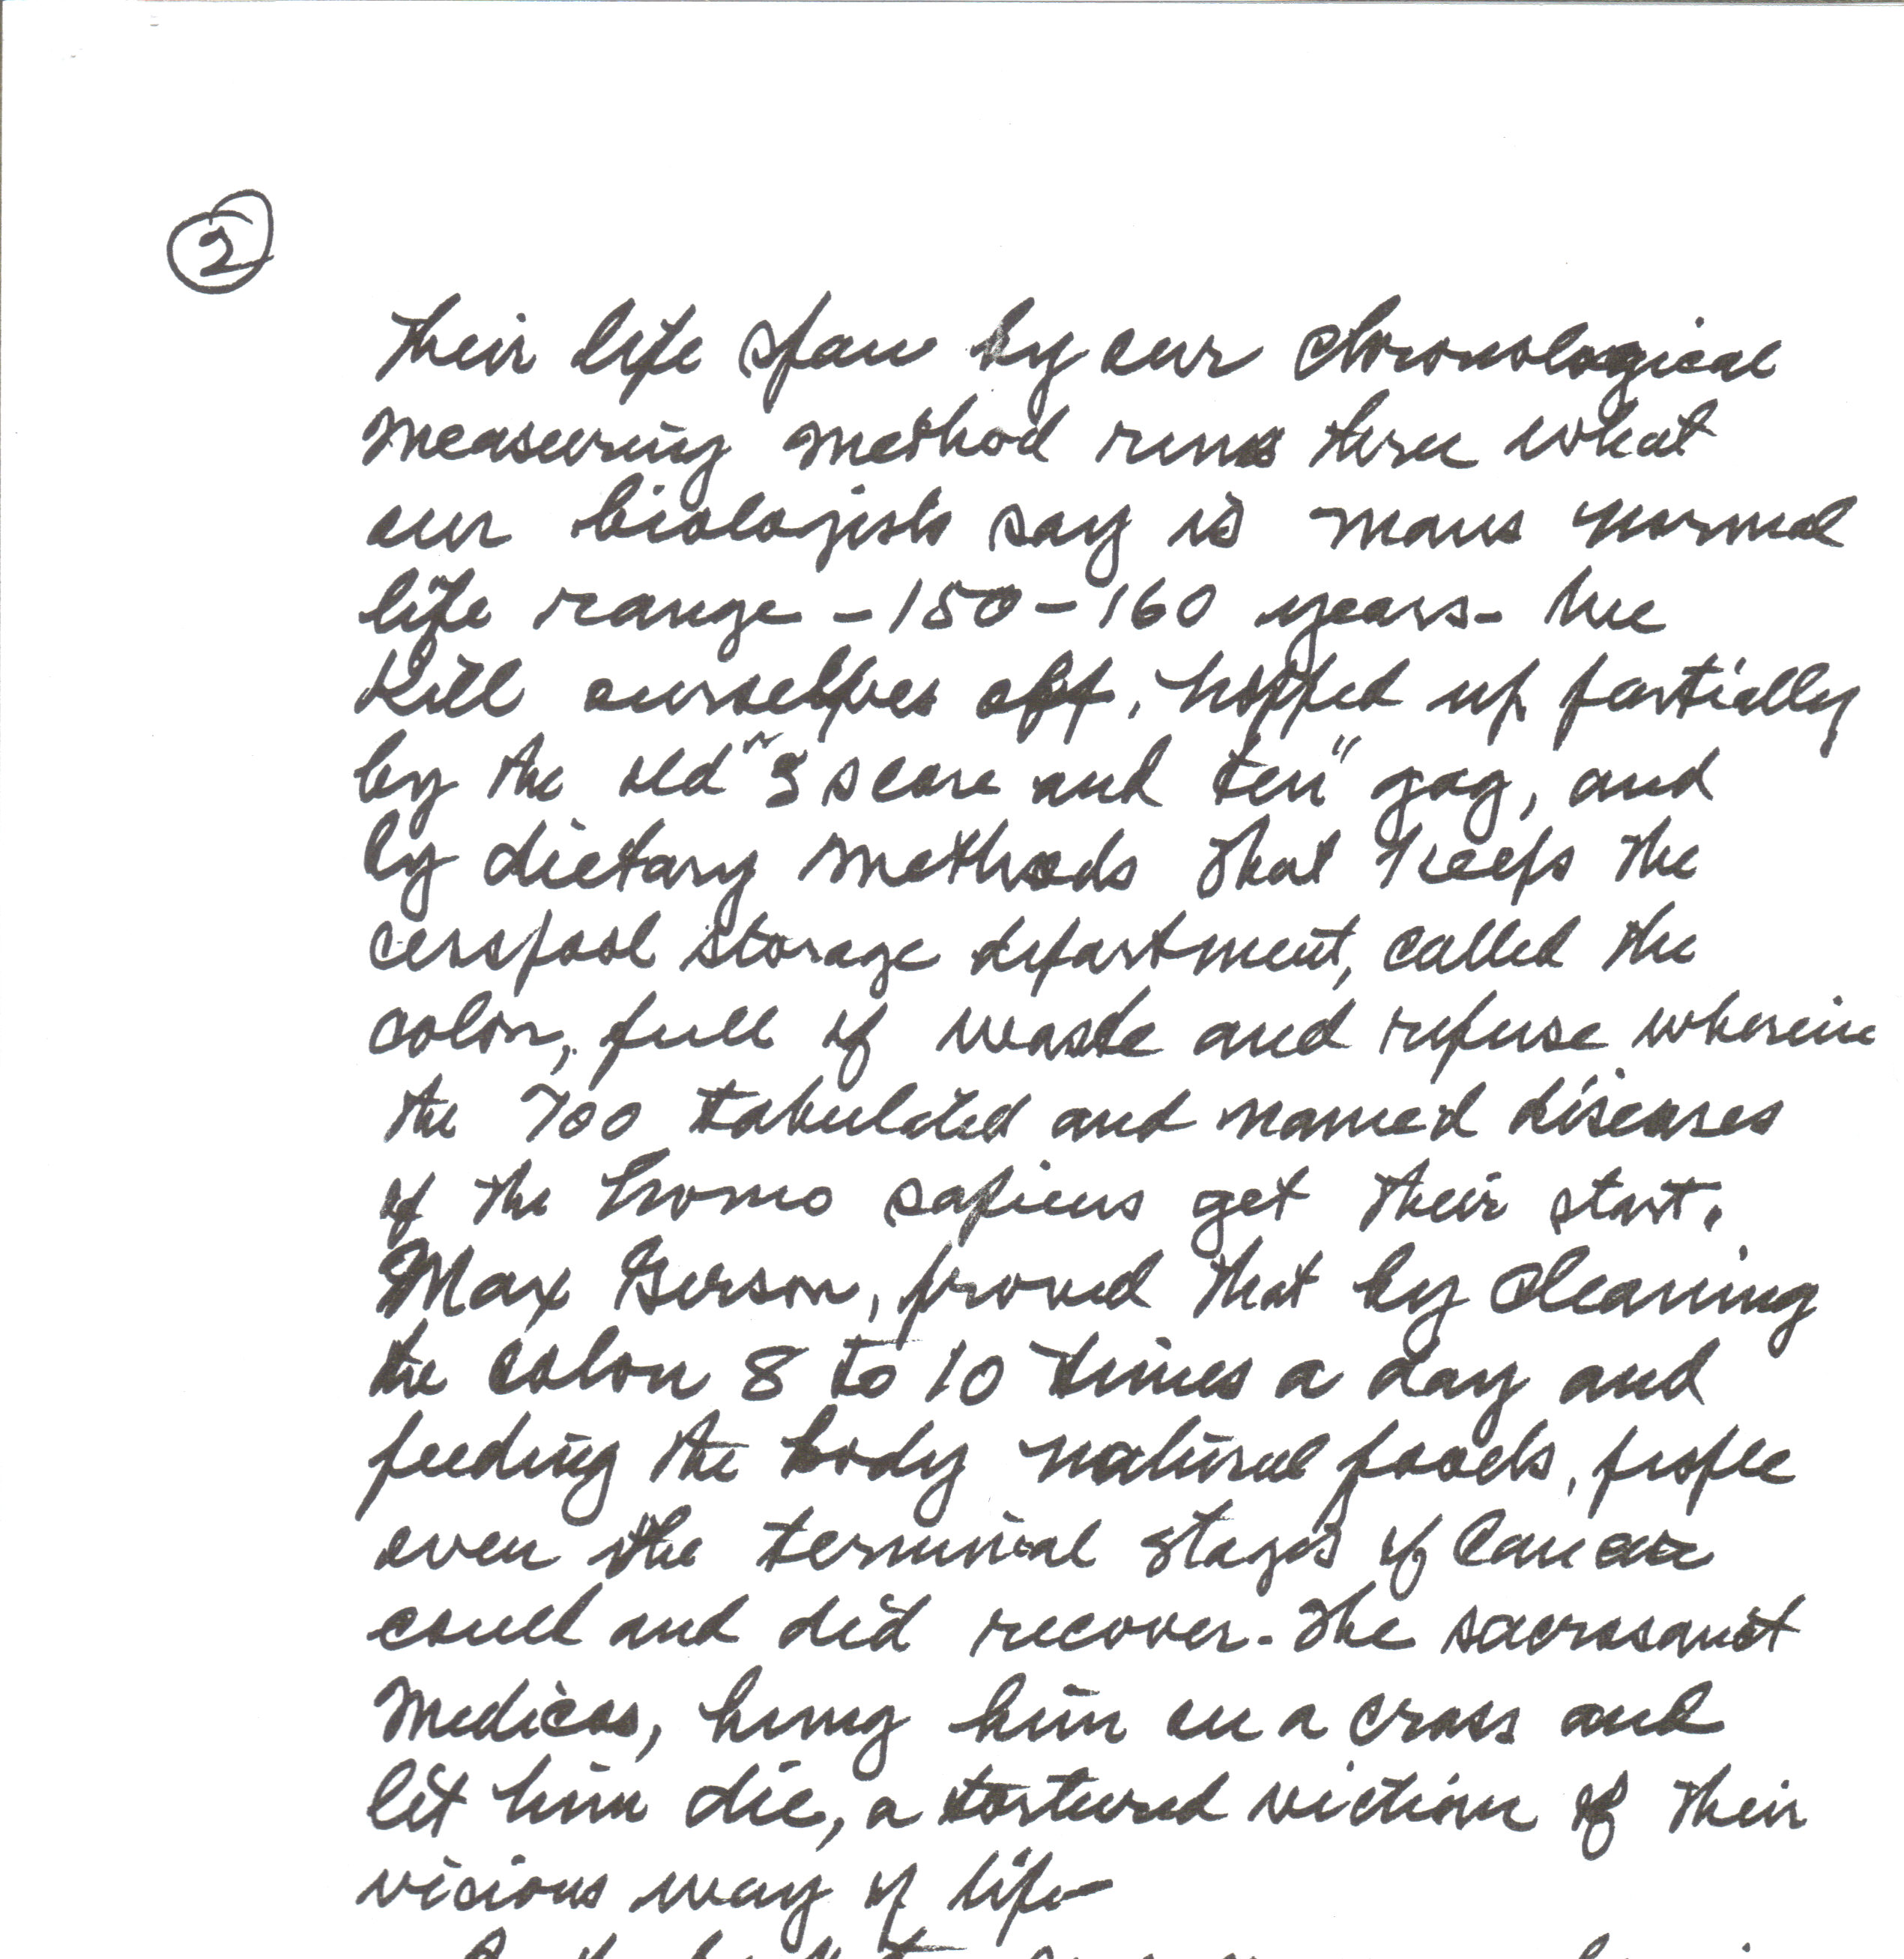 2
their life span by our chronological
measuring method runs thru what
our biologists say is mans normal
life range - 150 - 160 years - We
kill ourselves off, hopped up partially
by the old "3 score and ten" gag, and
by dietary methods that keeps the
cesspool storage department, called the
colon, full of waste and refuse wherein
the 700 tabulated and named diseases
of the homo sapiens get their start.
Max Gerson, proved that by cleaning
the colon 8 to 10 times a day and
feeding the body natural foods, people
even the terminal stages of Cancer
could and did recover. The sacrosanct
Medicos, hung him on a cross and
let him die, a tortured victim of their
vicious way of life